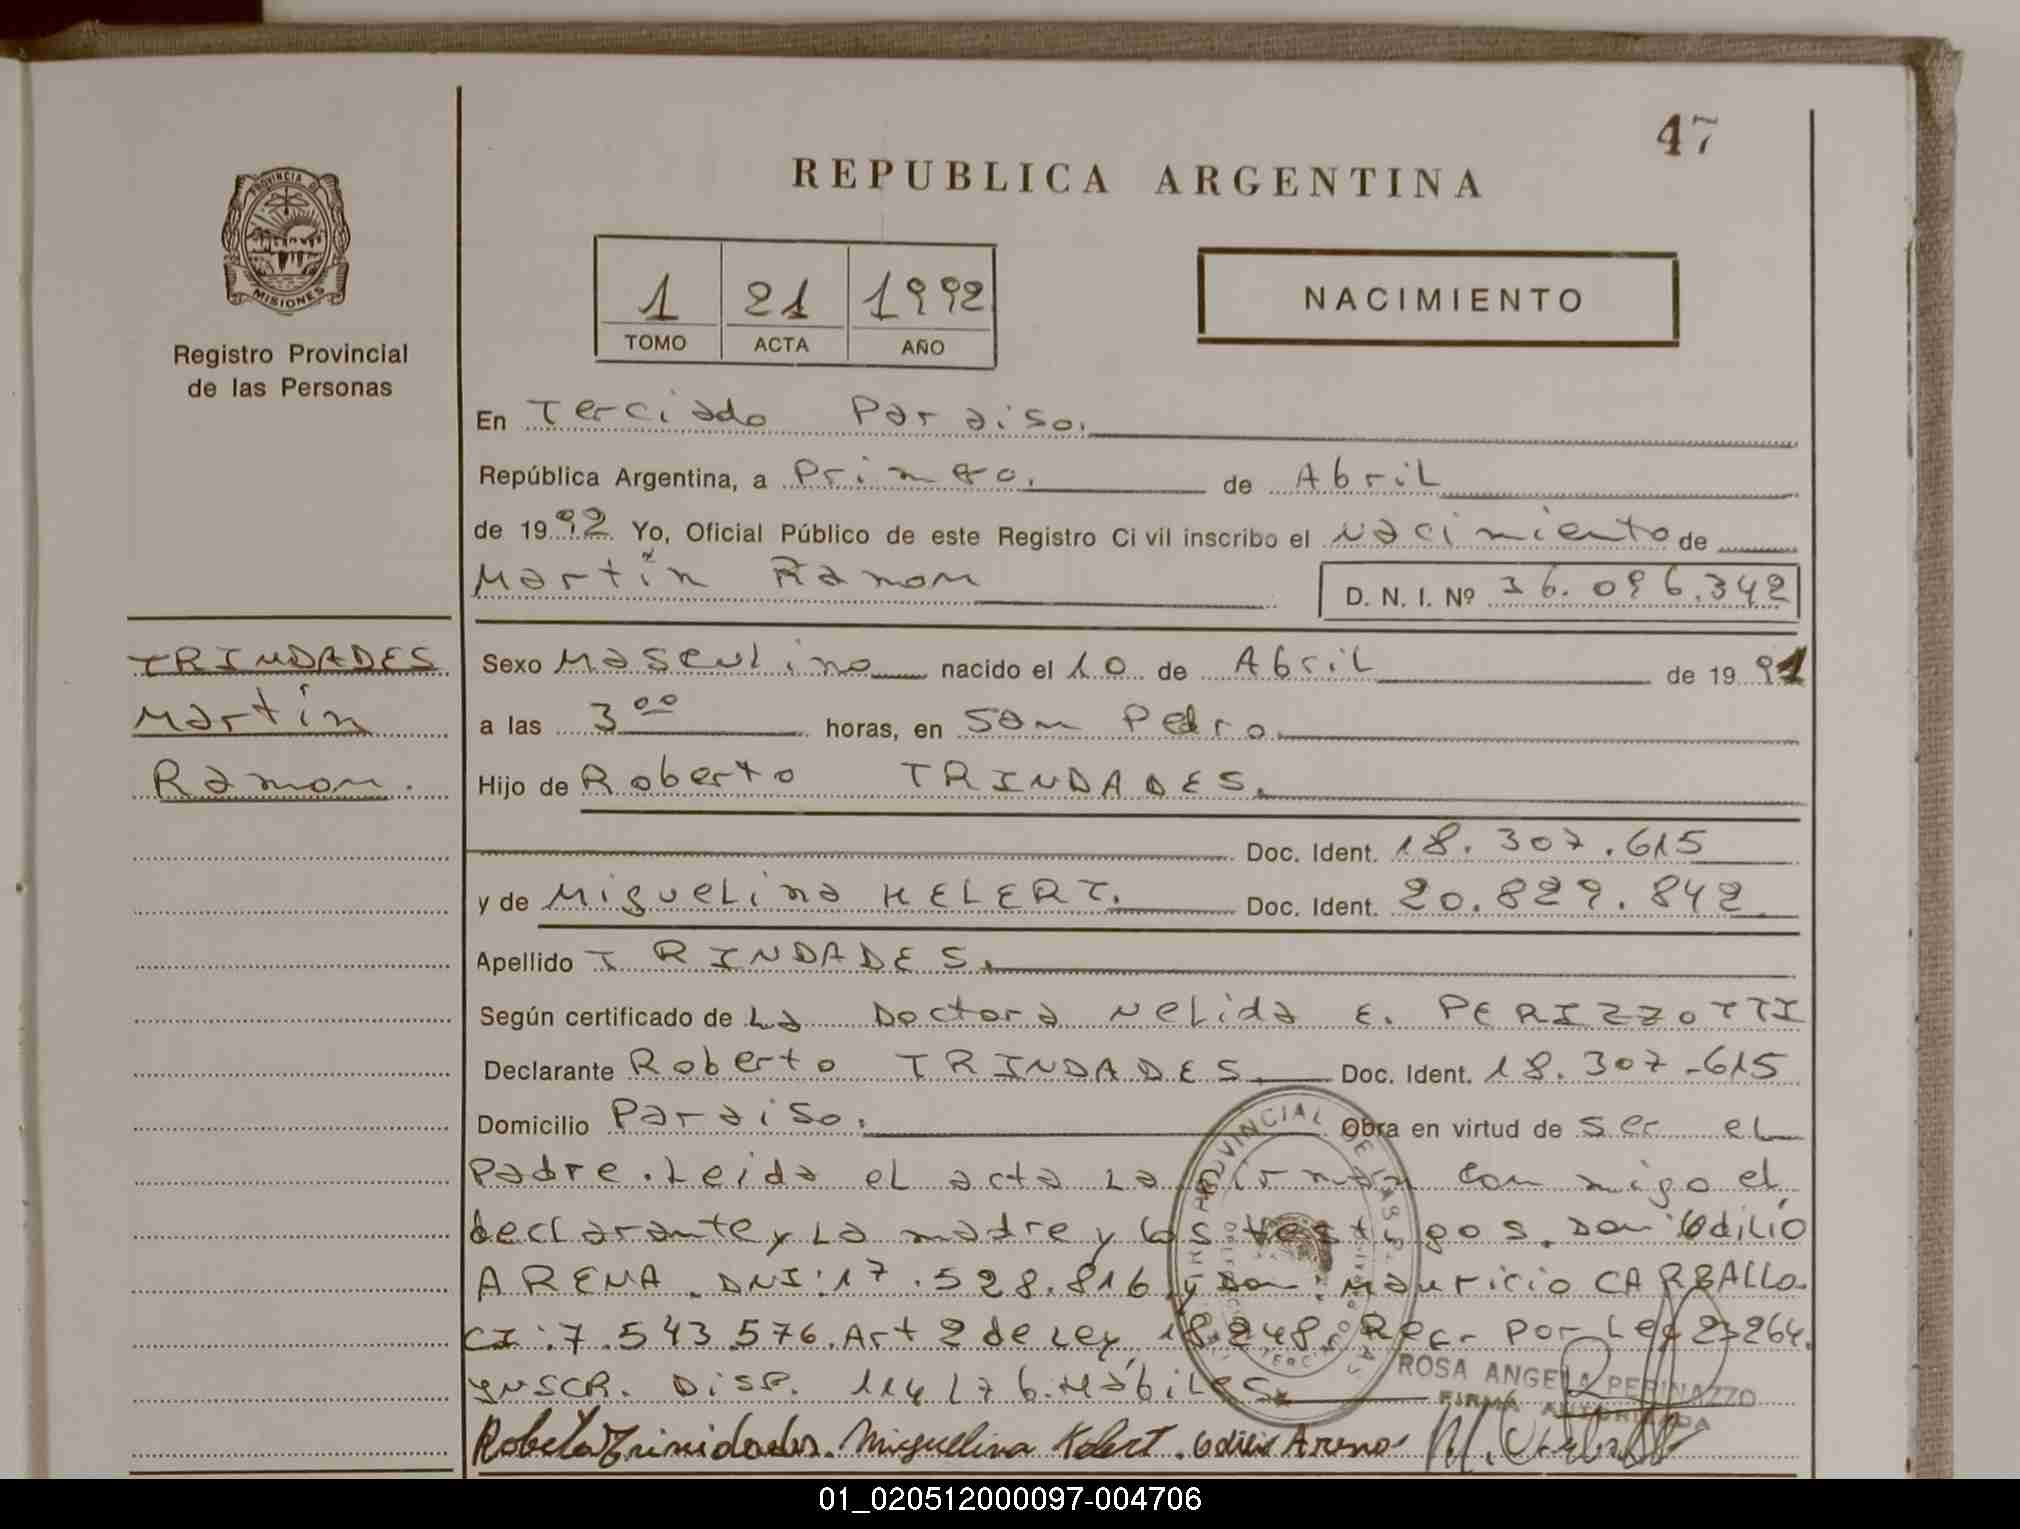 47
REPUBLICA ARGENTINA
PROVINCIA DE
MISIONES
Registro Provincial
de las Personas
1 21 1992
TOMO ACTA AÑO
NACIMIENTO
En Terciado Paraiso.
República Argentina, a Primero. de Abril
de 1992 Yo, Oficial Público de este Registro Civil inscribo el Nacimiento de
Martín Ramon D. N. I. Nº 36.096.342
TRINDADES
Martín
Ramon.
Sexo Masculino nacido el 10 de Abril de 1991
a las 3 00 horas, en San Pedro
Hijo de Roberto TRINDADES.
Doc. Ident. 18.307.615
y de Miguelina KELERT. Doc. Ident. 20.829.842
Apellido TRINDADES.
Según certificado de La Doctora Nelida E. PERIZZOTTI
Declarante Roberto TRINDADES. Doc. Ident. 18.307-615
Domicilio Paraiso. Obra en virtud de ser el
Padre. Leida el acta La firman con migo el
declarante y La madre y los testigos. Don Odilio
ARENA. DNI: 17.528.816 y Don: Mauricio CARBALLO.
CI: 7.543.576. Art 2 de Ley 18.248. Rec. Por Ley 23264.
INSCR. DISP. 114 Hábiles.
ROSA ANGELA PERINAZZO
FIRMA AUTORIZADA
Roberto Trinidades. Miguelina Kelert. Odilio Arena
01_020512000097-004706